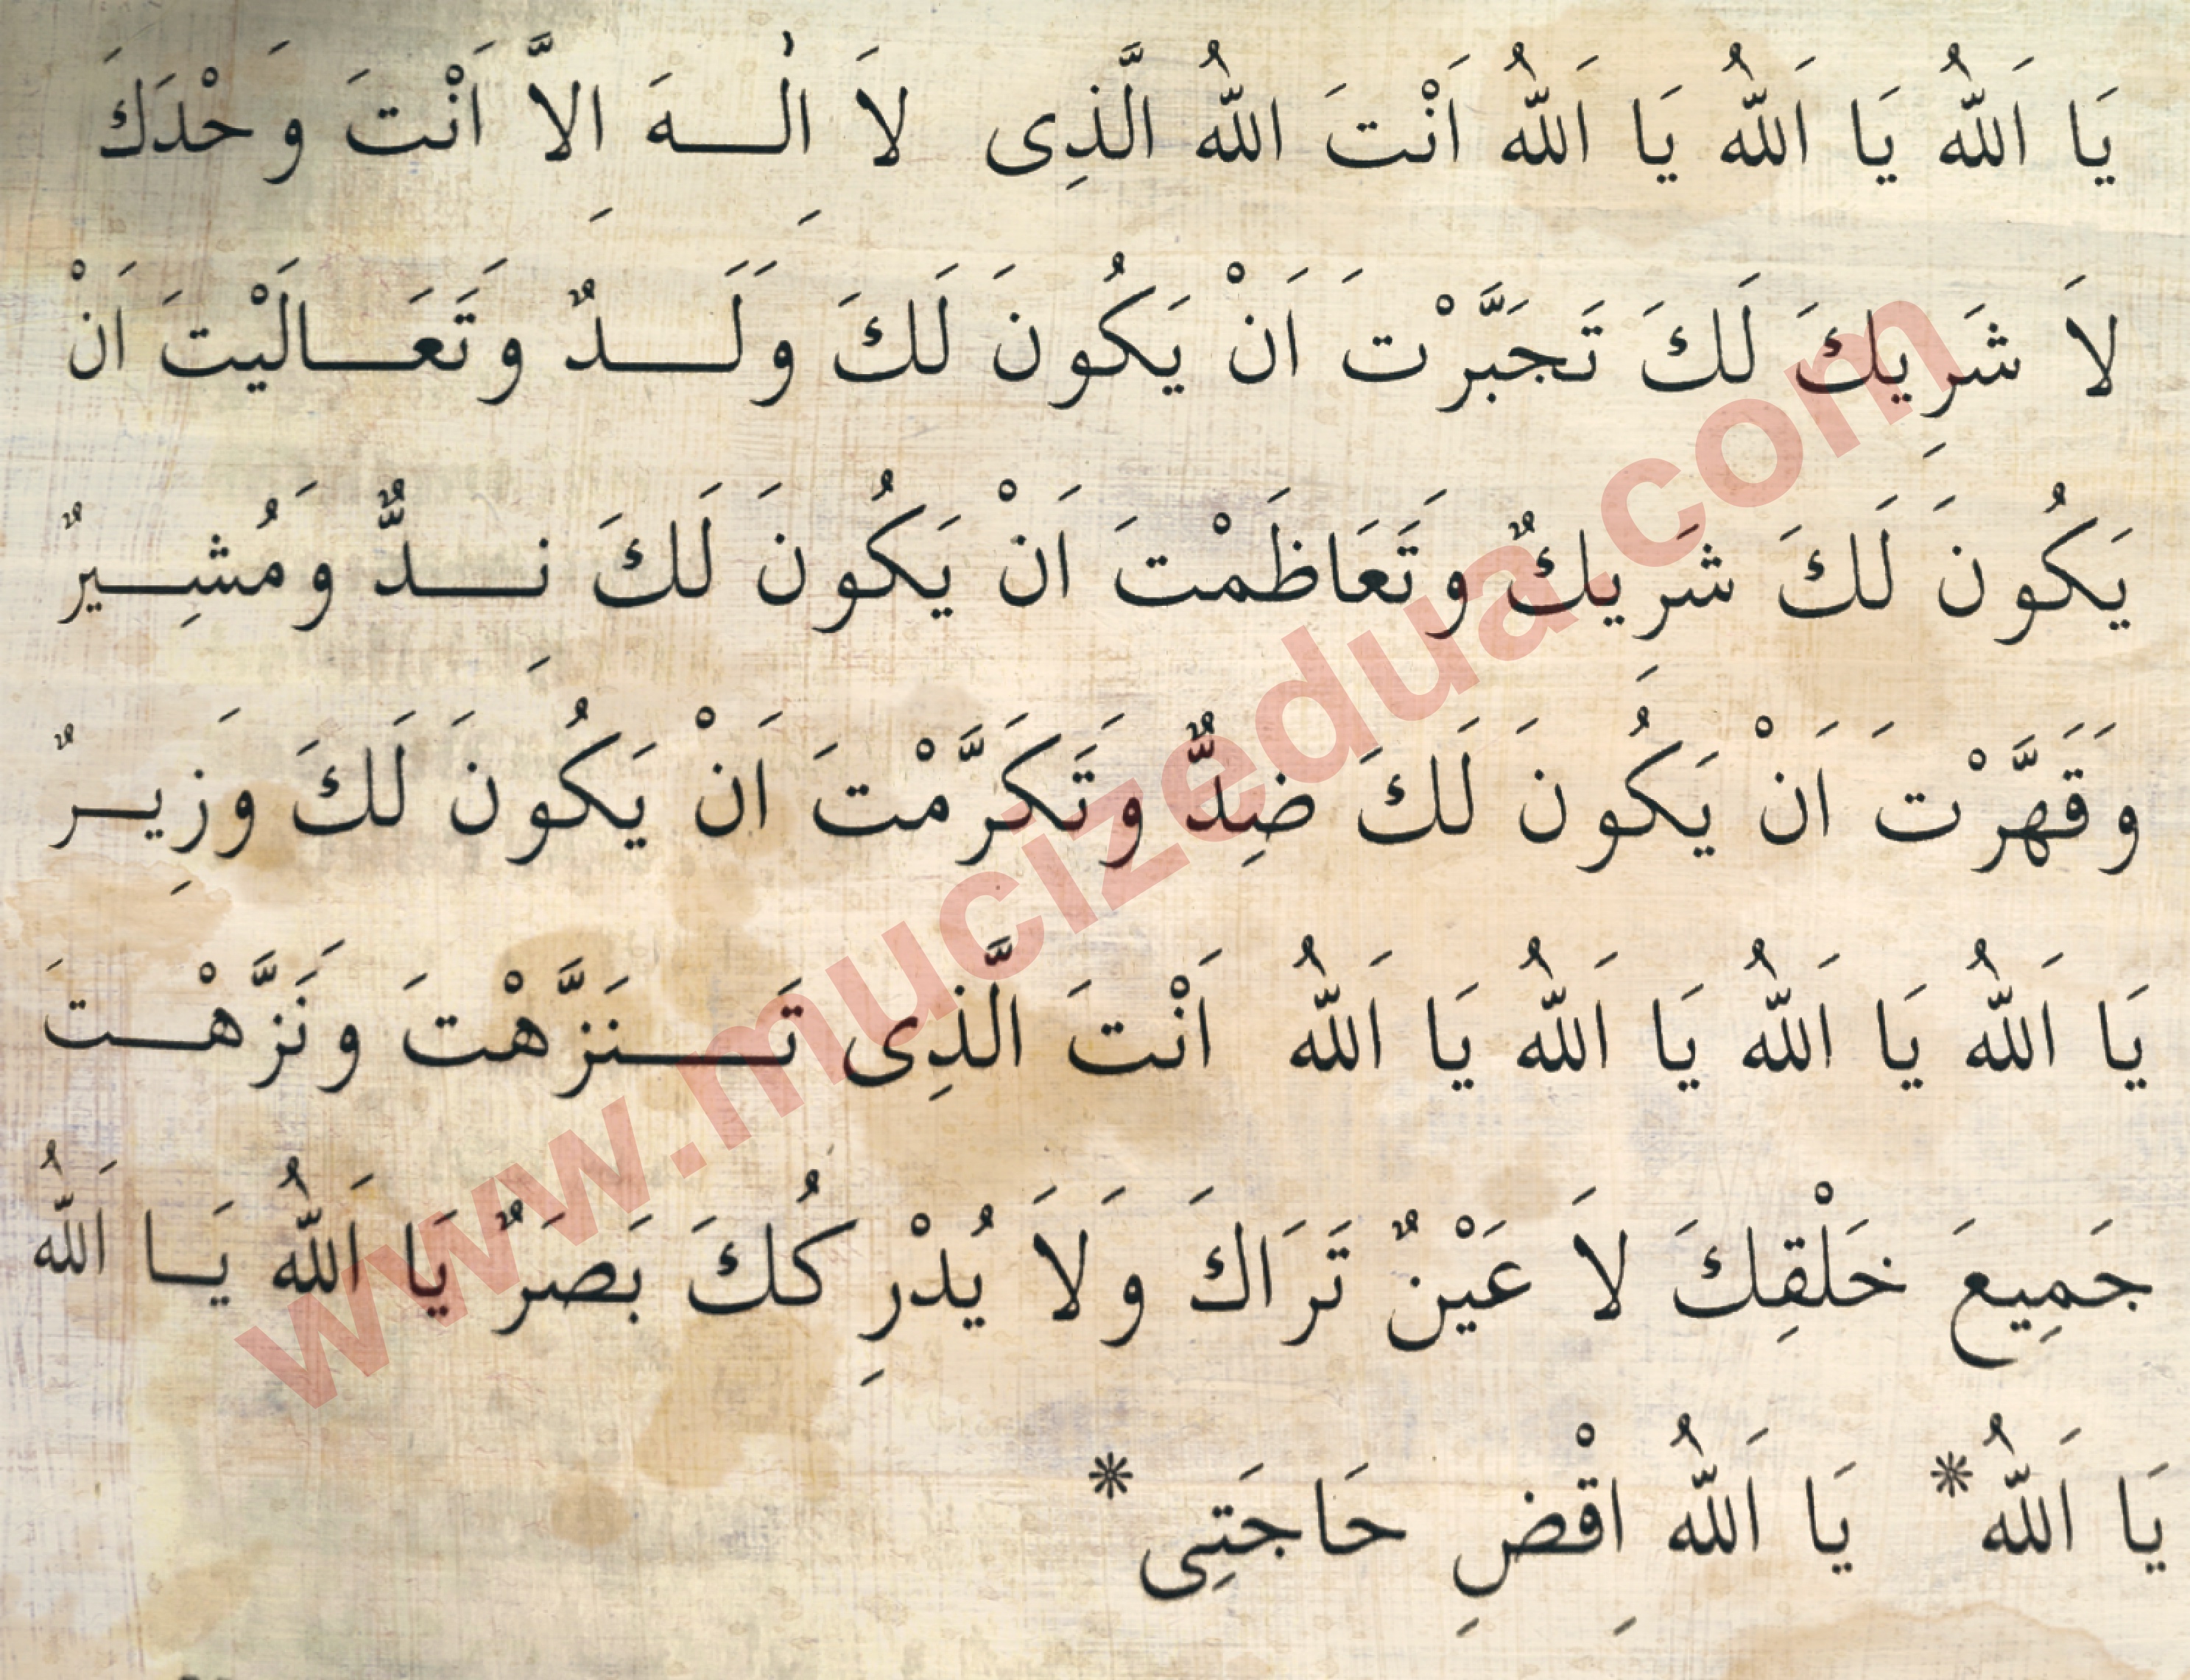 يَا اَللّٰهُ يَا اَللّٰهُ يَا اَللّٰهُ اَنْتَ اللّٰهُ الَّذِى لاَ اِلٰـهَ اِلاَّ اَنْتَ وَحْدَكَ
لاَ شَرِيكَ لَكَ تَجَبَّرْتَ اَنْ يَكُونَ لَكَ وَلَـدٌ وَتَعَـالَيْتَ اَنْ
يَكُونَ لَكَ شَرِيكٌ وَتَعَاظَمْتَ اَنْ يَكُونَ لَكَ نِـدٌّ وَمُشِـيرٌ
وَقَهَّرْتَ اَنْ يَكُونَ لَكَ ضِدٌّ وَتَكَرَّمْتَ اَنْ يَكُونَ لَكَ وَزِيـرٌ
يَا اَللّٰهُ يَا اَللّٰهُ يَا اَللّٰهُ يَا اَللّٰهُ اَنْتَ الَّذِى تَـنَزَّهْتَ وَنَزَّهْـتَ
جَمِيعَ خَلْقِكَ لاَ عَيْنٌ تَرَاكَ وَلاَ يُدْرِكُكَ بَصَرٌ يَا اَللّٰهُ يَـا اَللّٰهُ
يَا اَللّٰهُ * يَا اَللّٰهُ اِقْضِ حَاجَتِى *
www.mucizedua.com